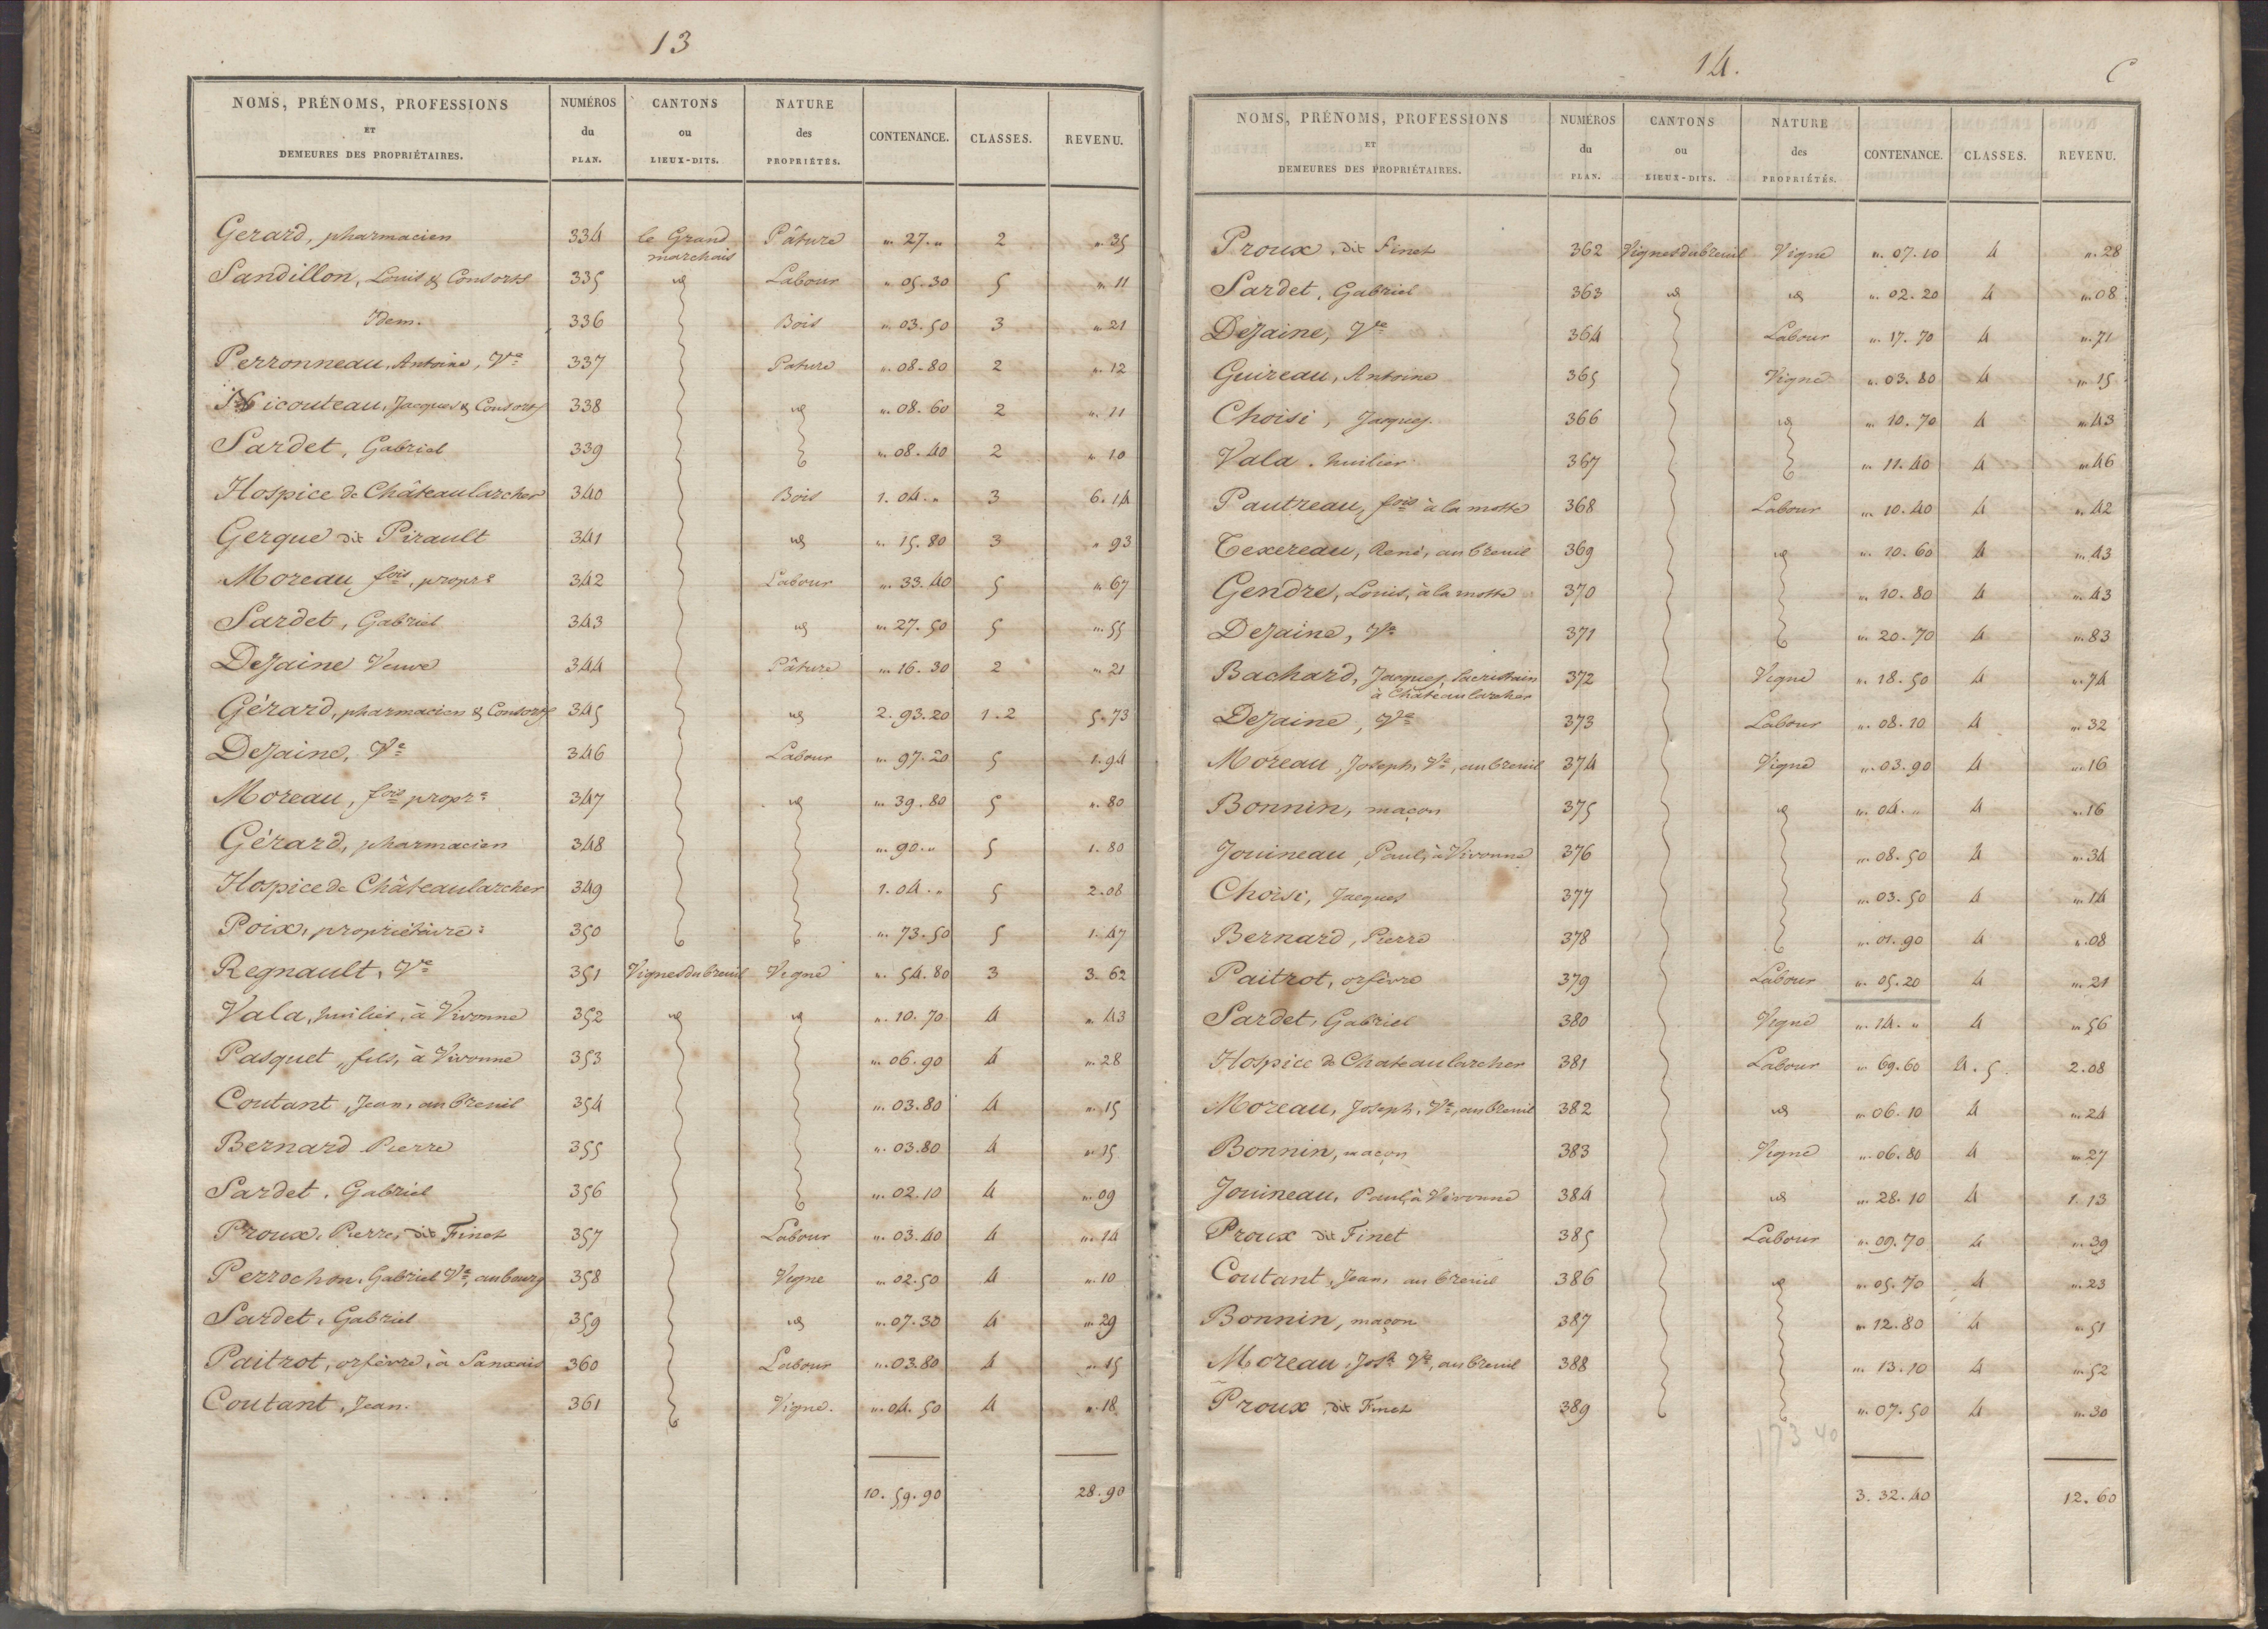 13
NOMS, PRÉNOMS, PROFESSIONS ET DEMEURES DES PROPRIÉTAIRES. NUMÉROS du PLAN. CANTONS ou LIEUX-DITS. NATURE des PROPRIÉTÉS. CONTENANCE. CLASSES. REVENU.
Gerard, pharmacien 334 le Grand marchais Pâture „. 27. „ 2 „. 35
Sandillon, Louis & Consorts 335 id Labour „. 05. 30 5 „. 11
Idem. 336 Bois „. 03. 50 3 „. 21
Perronneau, Antoine, Ve 337 Pature „. 08. 80 2 „. 12
Nicouteau, Jacques & Consorts 338 id „. 08. 60 2 „. 11
Sardet, Gabriel 339 „. 08. 40 2 „. 10
Hospice de Châteaularcher 340 Bois 1. 04. „ 3 6. 14
Gerque dit Pirault 341 id „. 15. 80 3 „. 93
Moreau fois, propre 342 Labour „. 33. 40 5 „. 67
Sardet, Gabriel 343 id „. 27. 50 5 „. 55
Dejaine Veuve 344 Pâture „. 16. 30 2 „. 21
Gérard, pharmacien & Consorts 345 id 2. 93. 20 1. 2 5. 73
Dejaine, Ve 346 Labour „. 97. 20 5 1. 94
Moreau, fois propre 347 id „. 39. 80 5 „. 80
Gérard, pharmacien 348 „. 90. „ 5 1. 80
Hospice de Châteaularcher 349 1. 04. „ 5 2. 08
Poix, propriétaire 350 „. 73. 50 5 1. 47
Regnault, Ve 351 Vignes du breuil Vigne „. 54. 80 3 3. 62
Vala, huilier, à Vivonne 352 id id „. 10. 70 4 „. 43
Pasquet, fils, à Vivonne 353 „. 06. 90 4 „. 28
Coutant, Jean, au breuil 354 „. 03. 80 4 „. 15
Bernard Pierre 355 „. 03. 80 4 „. 15
Sardet, Gabriel 356 „. 02. 10 4 „. 09
Proux, Pierre, dit Finet 357 Labour „. 03. 40 4 „. 14
Perrochon, Gabriel Ve, au bourg 358 Vigne „. 02. 50 4 „. 10
Sardet, Gabriel 359 id „. 07. 30 4 „. 29
Paitrot, orfèvre, à Sanxais 360 Labour „. 03. 80 4 „. 15
Coutant, Jean. 361 Vigne. „. 04. 50 4 „. 18
10. 59. 90 28. 90
14.
C
NOMS, PRÉNOMS, PROFESSIONS ET DEMEURES DES PROPRIÉTAIRES. NUMÉROS du PLAN. CANTONS ou LIEUX-DITS. NATURE des PROPRIÉTÉS. CONTENANCE. CLASSES. REVENU.
Proux, dit Finet 362 Vignes du breuil Vigne „. 07. 10 4 „. 28
Sardet, Gabriel 363 id id „. 02. 20 4 „. 08
Dejaine, Ve 364 Labour „. 17. 70 4 „. 71
Guireau, Antoine 365 Vigne „. 03. 80 4 „. 15
Choisi, Jacques. 366 id „. 10. 70 4 „. 43
Vala, huilier 367 „. 11. 40 4 „. 46
Pautreau, fois à la motte 368 Labour „. 10. 40 4 „. 42
Texereau, René, au breuil 369 id „. 10. 60 4 „. 43
Gendre, Louis, à la motte 370 „. 10. 80 4 „. 43
Dejaine, Ve 371 „. 20. 70 4 „. 83
Bachard, Jacques, Sacristain à Châteaularcher 372 Vigne „. 18. 50 4 „. 74
Dejaine, Ve 373 Labour „. 08. 10 4 „. 32
Moreau, Joseph, Ve, au breuil 374 Vigne „. 03. 90 4 „. 16
Bonnin, maçon 375 id „. 04. „ 4 „. 16
Jouineau, Paul, à Vivonne 376 „. 08. 50 4 „. 34
Choisi, Jacques 377 „. 03. 50 4 „. 14
Bernard, Pierre 378 „. 01. 90 4 „. 08
Paitrot, orfèvre 379 Labour „. 05. 20 4 „. 21
Sardet, Gabriel 380 Vigne „. 14. „ 4 „. 56
Hospice de Chateaularcher 381 Labour „. 69. 60 4. 5. 2. 08
Moreau, Joseph, Ve, au breuil 382 id „. 06. 10 4 „. 24
Bonnin, maçon 383 Vigne „. 06. 80 4 „. 27
Jouineau, Paul, à Vivonne 384 id „. 28. 10 4 1. 13
Proux dit Finet 385 Labour „. 09. 70 4 „. 39
Coutant, Jean, au breuil 386 id „. 05. 70 4 „. 23
Bonnin, maçon 387 „. 12. 80 4 „. 51
Moreau, Josh Ve, au breuil 388 „. 13. 10 4 „. 52
Proux, dit Finet 389 „. 07. 50 4 „. 30
173 40
3. 32. 40 12. 60